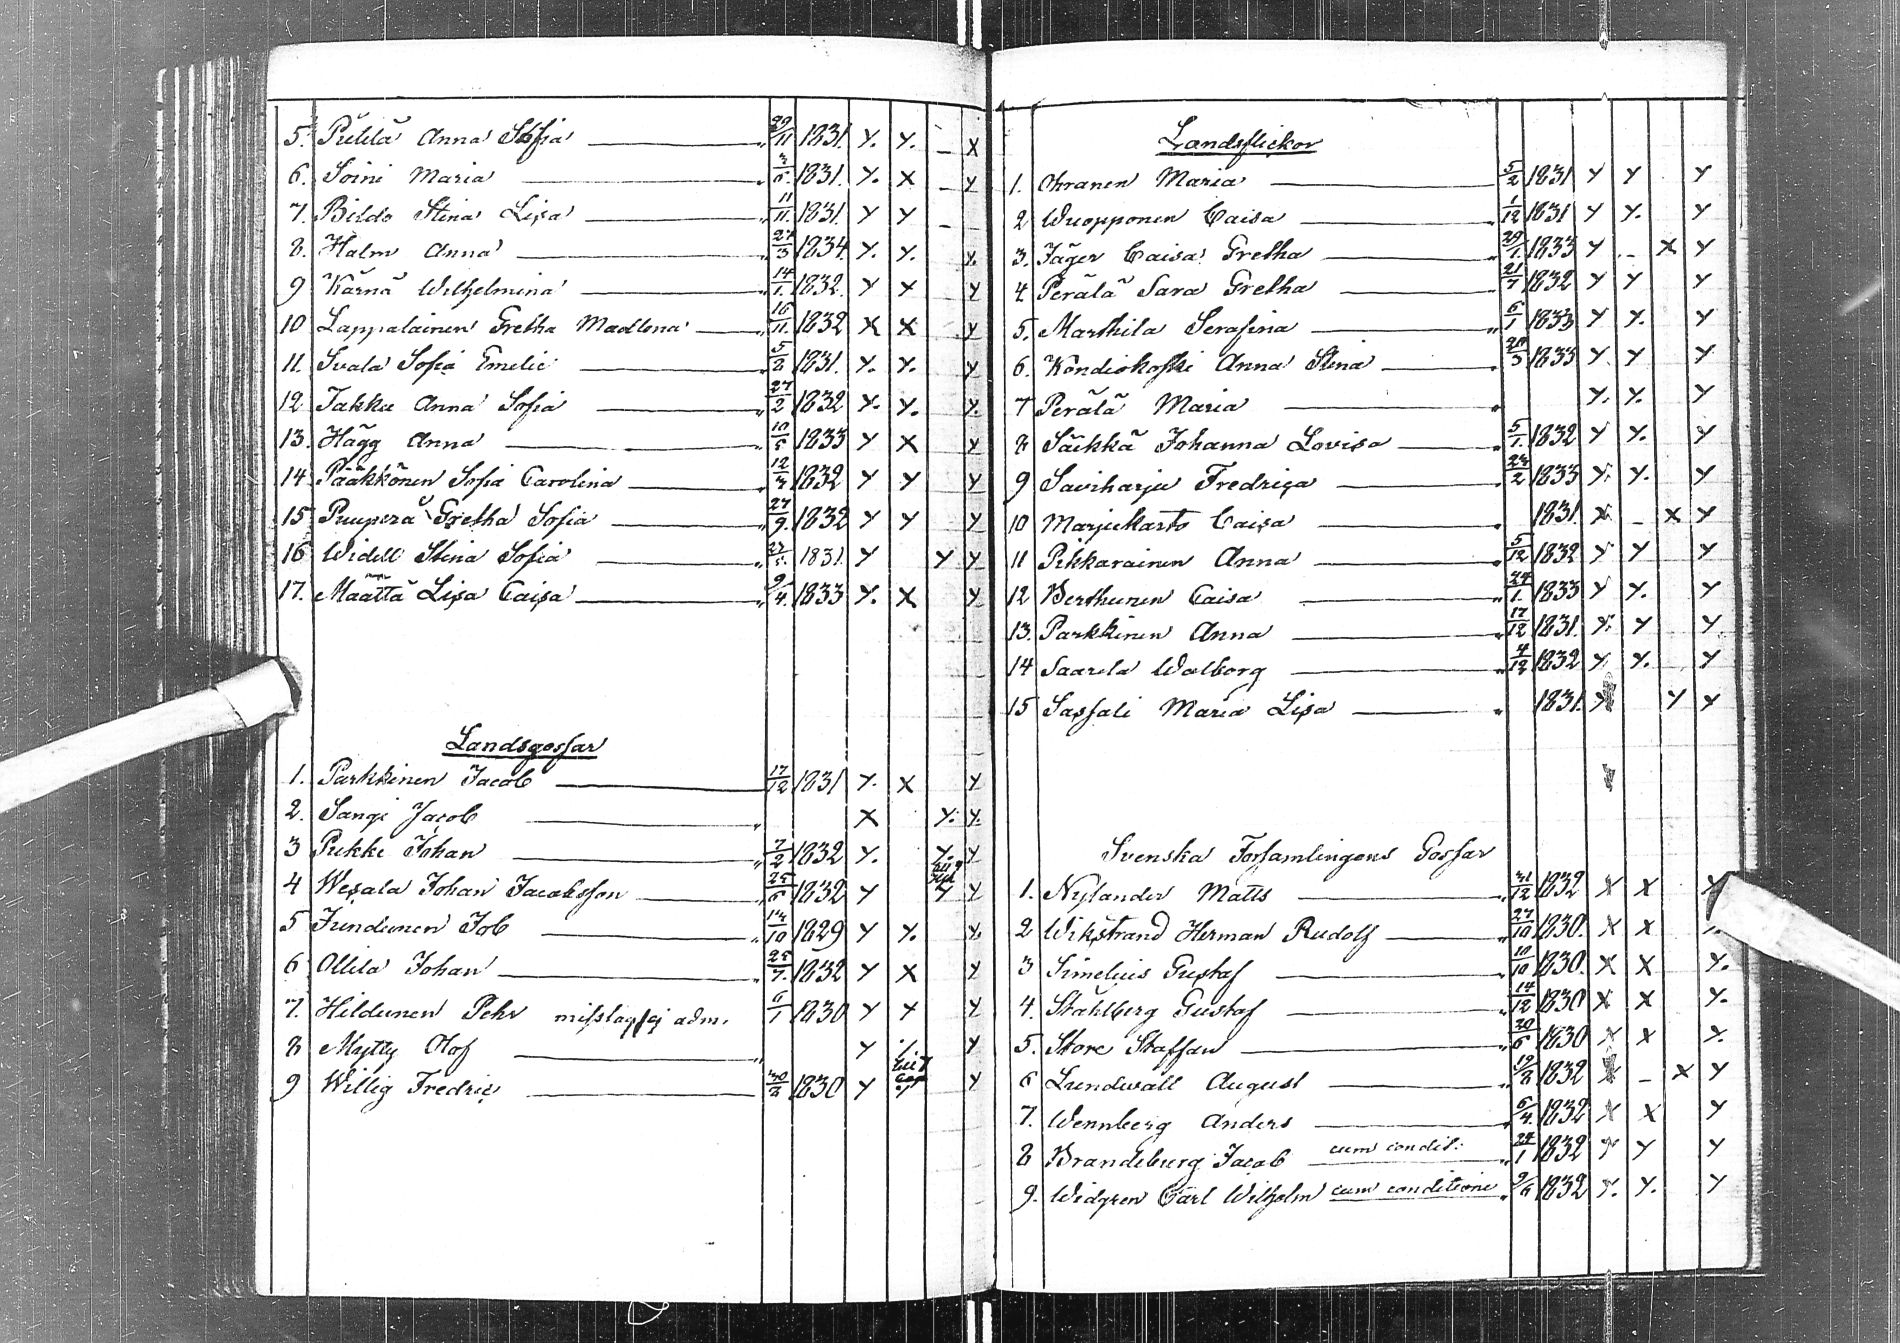 5. Pulità Anna Sofia 29/11 1831. Y. Y. - X
6. Soini Maria 1831. Y. X - Y
7. Bildo Stina Lisa 11/11. 1831. Y Y -
8. Halm Anna 24/3 1834. Y. Y. Y.
9 Kärnä Wilhelmina 14/1. 1832. Y Y Y
10 Lappalainen Gretha Madlena 16/11. 1832 X X Y
11. Svala Sofia Emelie 5/2 1831. Y. Y. Y
12 Jakku Anna Sofia 27/2 1832 Y. Y. Y.
13. Hägg Anna 10/5 1833 Y X Y
14 Pääkkönen Sofia Carolina 12/3 1832 Y Y Y
15 Puuperä Gretha Sofia 27/9. 1832 Y Y Y
16 Widell Stina Sofia 1831. Y Y Y
17. Määttä Lisa Caisa 9/4. 1833 Y. X Y
Landsgossar
1. Parkkinen Jacob 17/12 1831 Y. X Y
2. Sangi Jacob X Y. Y.
3 Pukki Johan 7/2 1832 Y. Y. Y
4 Wesala Johan Jacobsson 25/6 1832 Y Y Y
5 Jundunen Job 1829 Y Y. Y.
6 Ollila Johan 25/7. 1832 Y X Y
7. Hildunen Pehr ej adm. 6/1 1830 Y Y Y
8 Mytty Olof Y Y
9 Willig Fredric 30/2 1830 Y Y Y
Landsflickor
1. Ohranen Maria 5/2 1831 Y Y Y
2 Wuopponen Caisa 1/12 1831 Y Y. Y
3. Jäger Caisa Gretha 29/1. 1833 Y - X Y
4 Perälä Sara Gretha 21/7 1832 Y Y Y
5. Marthila Serafina 6/1 1833 Y Y. Y
6. Kondiokoski Anna Stina 1833 Y. Y Y
7 Perälä Maria Y. Y. Y
8 Säikkä Johanna Lovisa 5/1. 1832 Y Y. Y
9 Saviharju Fredrica 23/2 1833 Y. Y. Y
10 Marjukarto Caisa 1831. X - X Y
11 Pikkarainen Anna 5/12 1832 Y Y Y
12 Berthunen Caisa 24/1. 1833 Y Y. Y
13. Parkkinen Anna 17/12 1831. Y. Y Y.
14 Saarela Walborg 4/12 1832 Y Y. Y
15 Sassali Maria Lisa 1831. Y Y Y
Svenska Forsamlingens Gossar
1. Nylander Matts 31/12 1832 X X X
2 Wikstrand Herman Rudolf 27/10 1830. X X
3 Simelius Gustaf 11/10 1830. X X Y.
4. Ståhlberg Gustaf 14/12 1830 X X Y.
5. Store Staffan 20/6 1830 X X Y.
6 Lundwall August 19/8 1832 X - X Y
7. Wennberg Anders 6/4. 1832 X X Y
8 Brandeburg Jacob cum condit: 24/1 1832 Y Y Y
9. Widgren Carl Wilhelm cum conditione 9/6 1832 Y. Y. Y